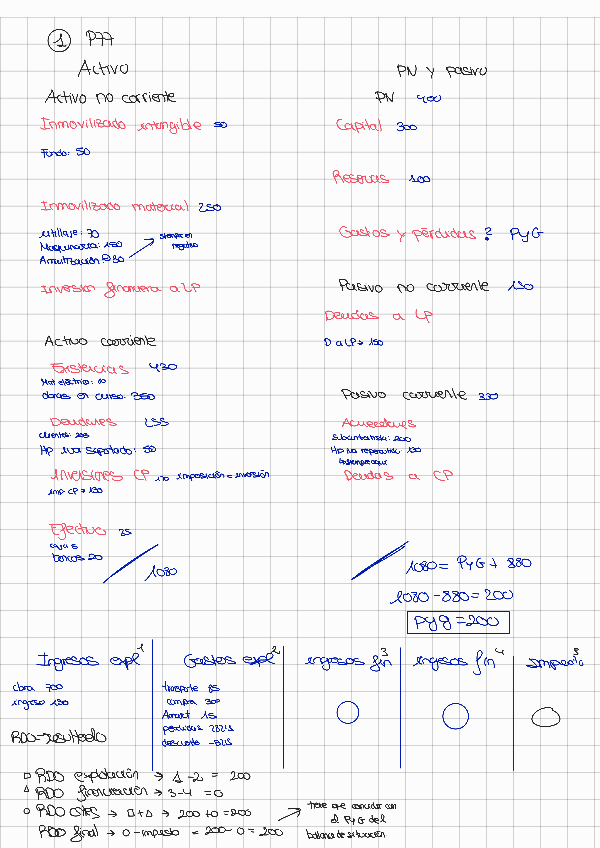 1 P77
Activo
Activo no corriente
Inmovilizado intangible 50
Fondo: 50
Inmovilizado material 250
utillaje: 70
Maquinaria: 150
siempre en
negativo
Inversión financiera a LP
Activo corriente
Existencias 430
Mat eléctrico:
obras en curso: 350
Deudores 255
clientes: 205
HP iva soportado: 50
INVERSIONES CP no imposición = inversión
imp CP → 120
Efectivo 25
caja 5
bancos 20
1080
PN y pasivo
PN 400
Capital 300
Reservas 100
Gastos y pérdidas ? PyG
Pasivo no corriente 150
Deudas a LP
D a LP → 150
Pasivo corriente 330
Acreedores
Subcontratista: 200
HP iva repercutido: 130
siempre aquí
Deudas a CP
1080 = PyG + 880
1080 - 880 = 200
PyG = 200
Ingresos expl 1
obra 700
ingreso 130
RDO → resultado
Gastos expl 2
transporte 85
compra 300
Amort 15
ingresos fin 3
O
ingresos fin 4
O
Impuesto 5
O
□ RDO explotación → 1 - 2 = 200
△ RDO financiación → 3-4 = 0
○ RDO → □ + △ → 200 + 0 = 200
RDO final → O - impuesto = 200 - 0 = 200
tiene que coincidir con
el PyG del
balance de situación